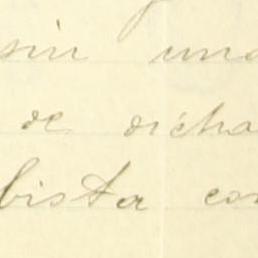 sin una
de dicha
bista con